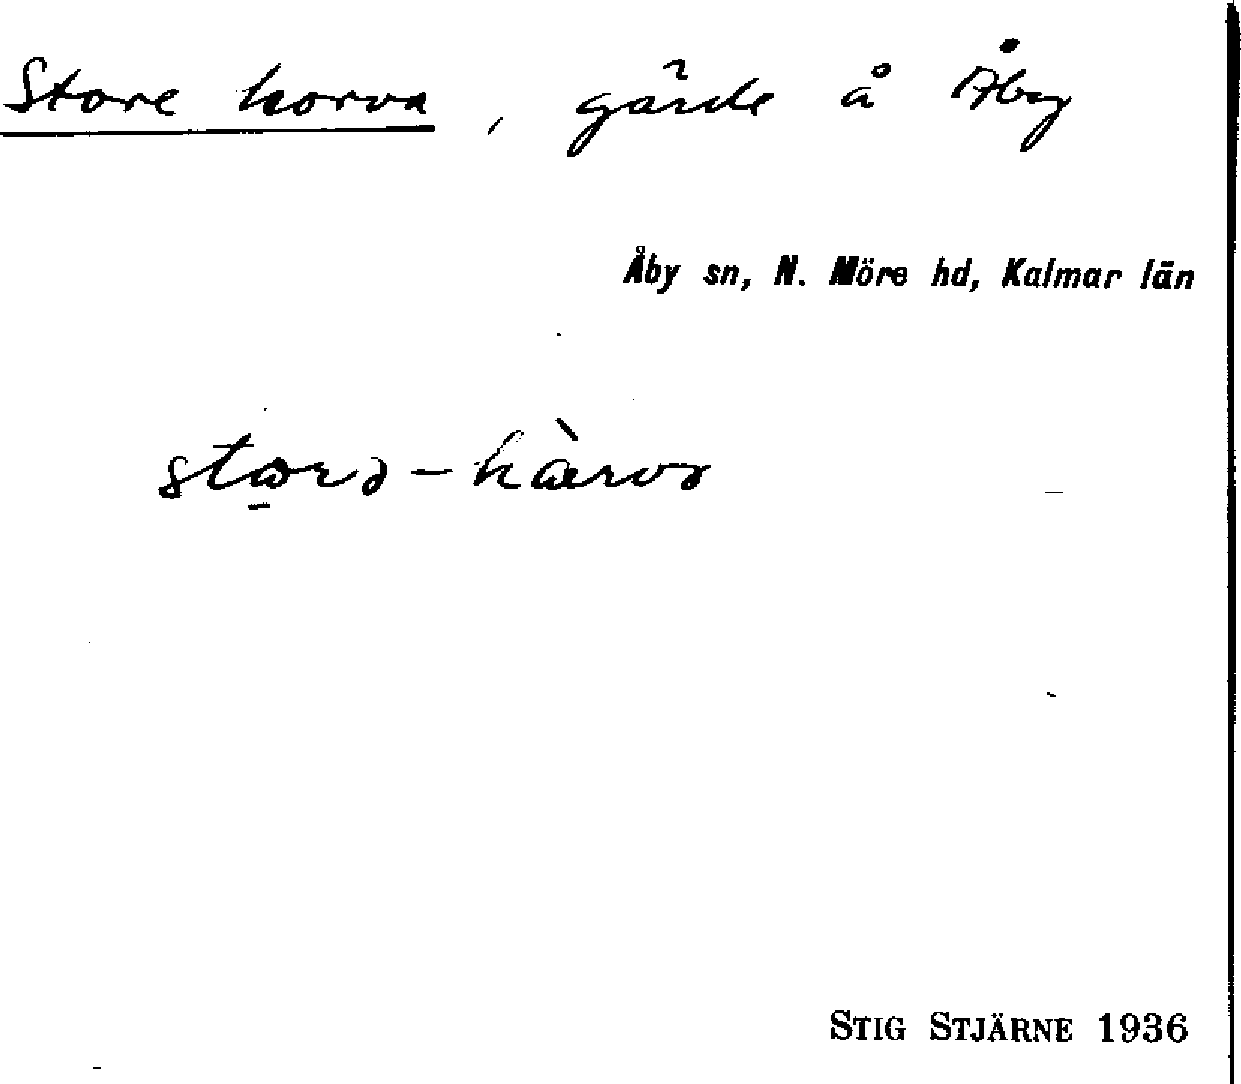 Store horva, gärde å Åby
Åby sn, N. Möre hd, Kalmar län
STIG STJÄRNE 1936